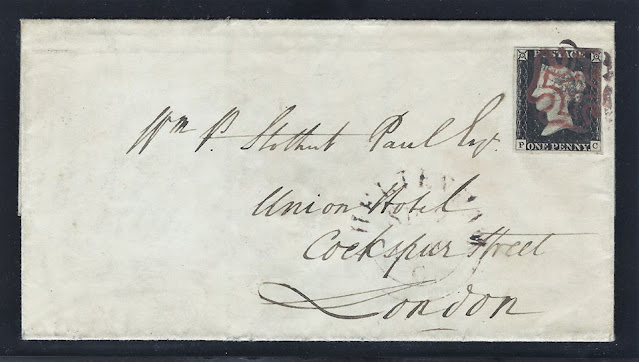 POSTAGE
P ONE PENNY C
Wm P. Stothert Paul Esqr.
Union Hotel
Cockspur Street
London